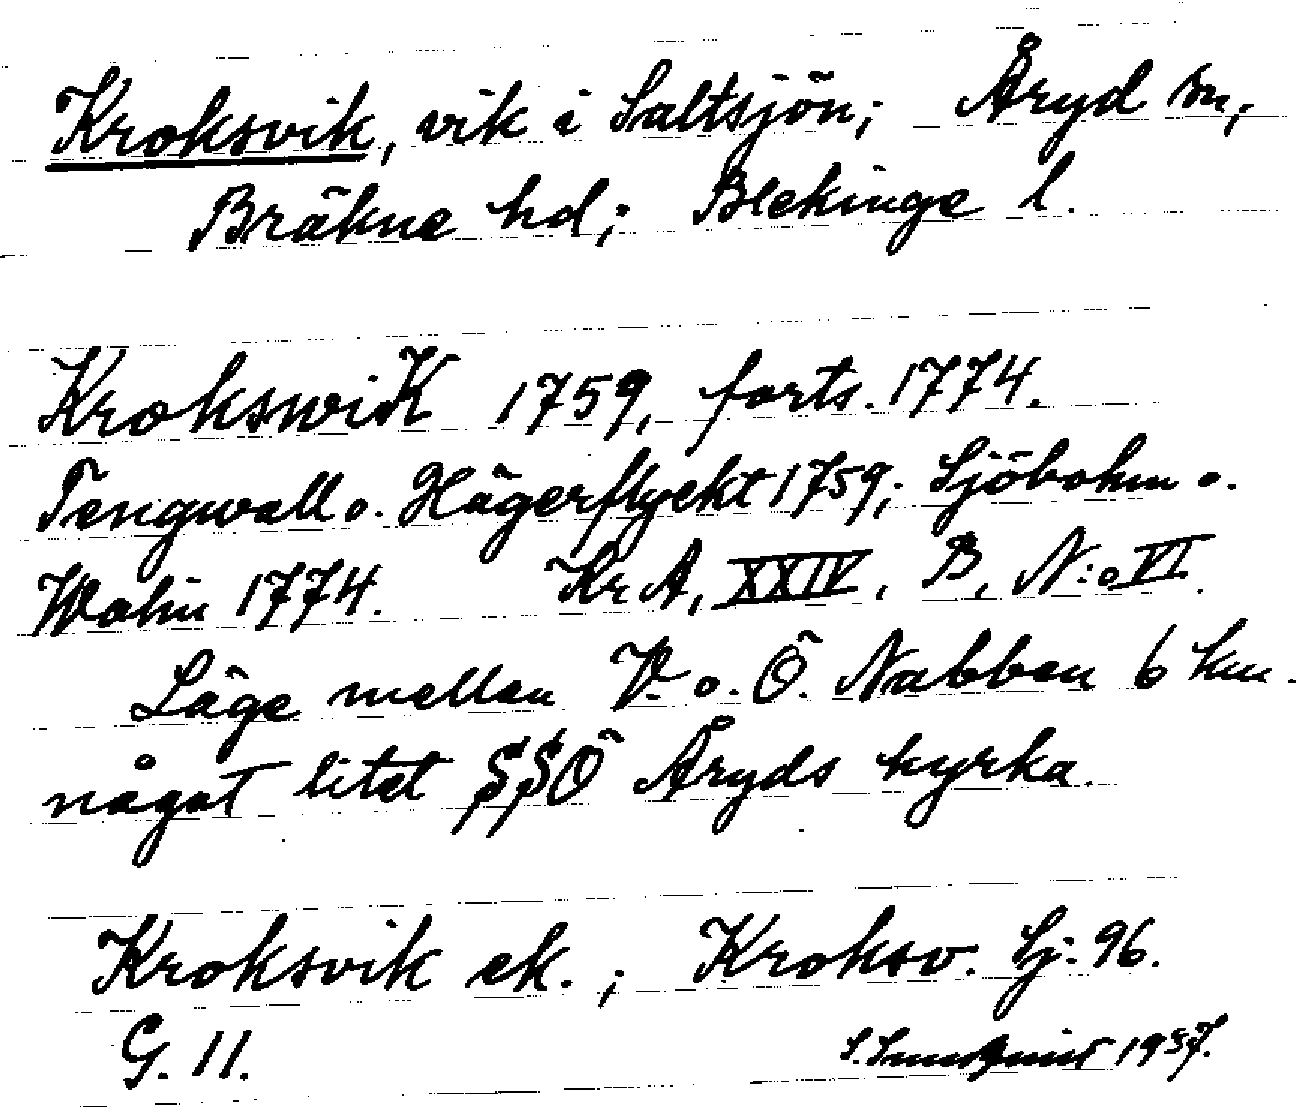 Kroksvik, vik i Saltsjön; Åryd sn,
Bräkne hd; Blekinge l.
KrokswiK 1759, forts. 1774.
Tengwall o. Hägerflyckt 1759; Sjöbohm o.
Wahn 1774. Kr A, XXIV, B, N:o VI.
Läge mellan V. o. Ö. Nabben 6 km.
något litet SSÖ Åryds kyrka.
Kroksvik ek.; Kroksv. Sj. 96.
G. 11.
1937.